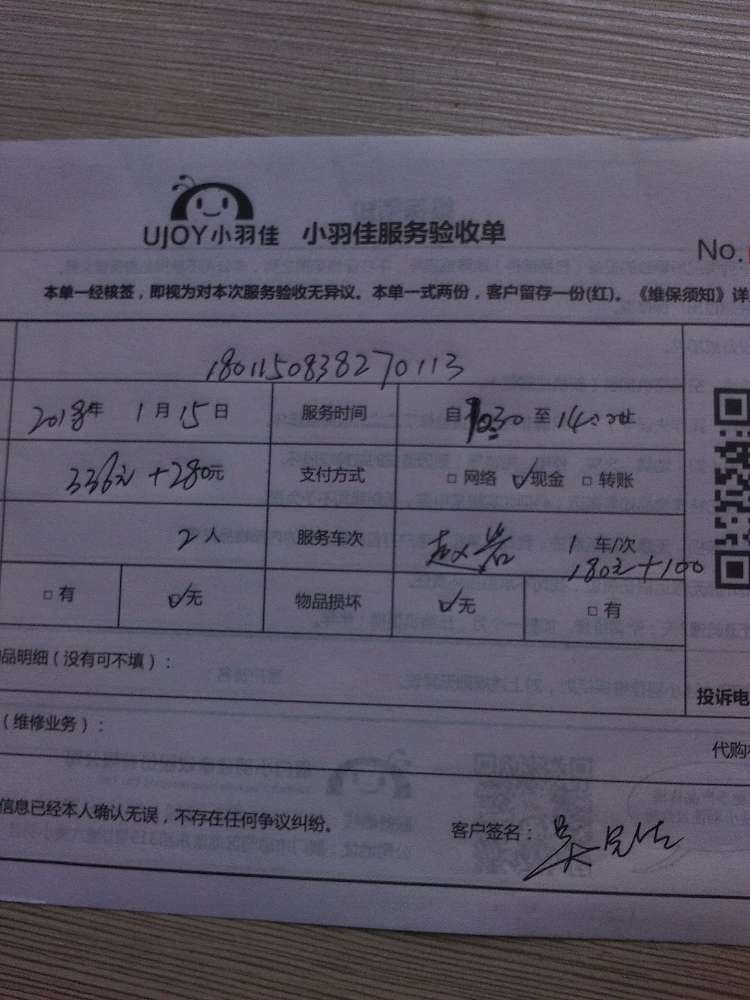 UJOY小羽佳 小羽佳服务验收单
No.
本单一经核签，即视为对本次服务验收无异议。本单一式两份，客户留存一份(红)。《维保须知》详
1801150838270113
2018年 1月15日 服务时间 自 10:30 至 14:00止
336元+280元 支付方式 □网络 ☑现金 □转账
2人 服务车次 赵岩 1车/次
180元+100
□有 ☑无 物品损坏 ☑无 □有
品明细（没有可不填）：
投诉电
（维修业务）：
代购
信息已经本人确认无误，不存在任何争议纠纷。 客户签名：吴